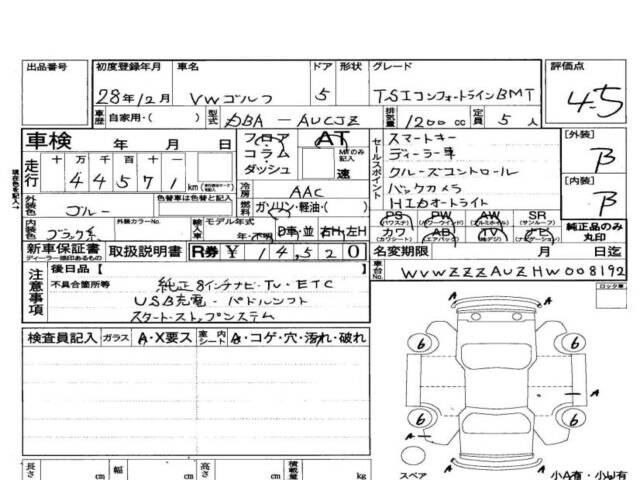 出品番号 初度登録年月 車名 ドア 形状 グレード 評価点
28年12月 VWゴルフ 5 TSIコンフォートラインBMT 4.5
車歴 自家用・( ) 型式 DBA-AUCJZ 排気量 1200cc 定員 5人
車検 年 月 日 フロア AT スマートキー [外装]
走行 十 万 千 百 十 一 コラム MTのみ記入 セールスポイント ディーラー車 B
4 4 5 7 1 km ダッシュ 速 クルーズコントロール
冷房 AAC バックカメラ [内装]
外装色 ブルー 色替車は色替と記入 燃料 ガソリン・軽油・( ) HIDオートライト B
現在色を記入→
内装色 ブラック系 外装カラーNo. 輸入車 モデル年式 年・不明 D車・並 右H・左H PS (パワステ) PW (パワーウインド) AW (アルミホイル) SR (サンルーフ)
カワ (カワシート) AB (エアバック) TV (TV・デジ) ナビ (ナビゲーション) 純正品のみ丸印
新車保証書 取扱説明書 R券 ¥14,520 名変期限 年 月 日迄
ディーラー捺印あるもの
車台No. WVWZZZAUZHW008192
注意事項 後日品[ ] ロック車
不具合箇所等 純正8インチナビ・TV・ETC
USB充電・パドルシフト
スタート・ストップシステム
検査員記入 ガラス A・X要ス 室内シート A・コゲ・穴・汚れ・破れ
6 6
A A
6 6
A
A
長さ cm 幅 cm 高さ cm 積載量 kg スペア 小A有・小U有